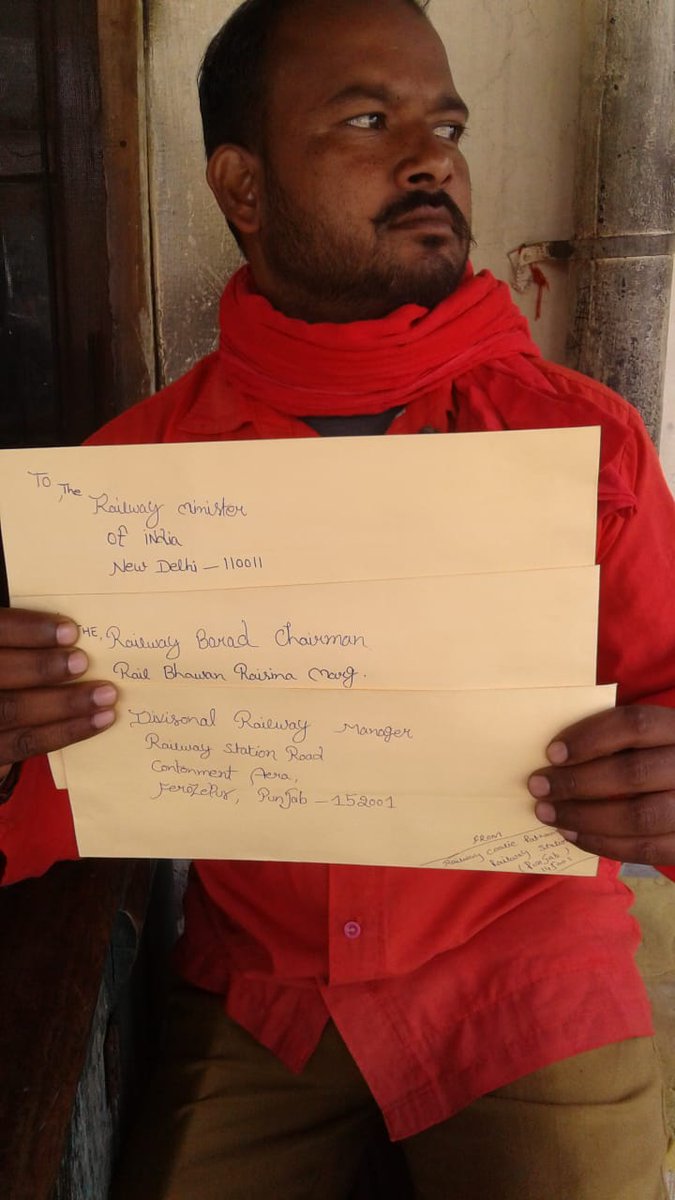 TO
,The
Railway Minister
of india
New Delhi – 110011
THE, Railway Barad Chairman
Rail Bhawan Raisina Marg.
Divisonal Railway Manager
Railway Station Road
Contonment Aera,
FeroZePur, PunJab – 152001
FROM
Railway Coolie
Railway Station
(PunJab)